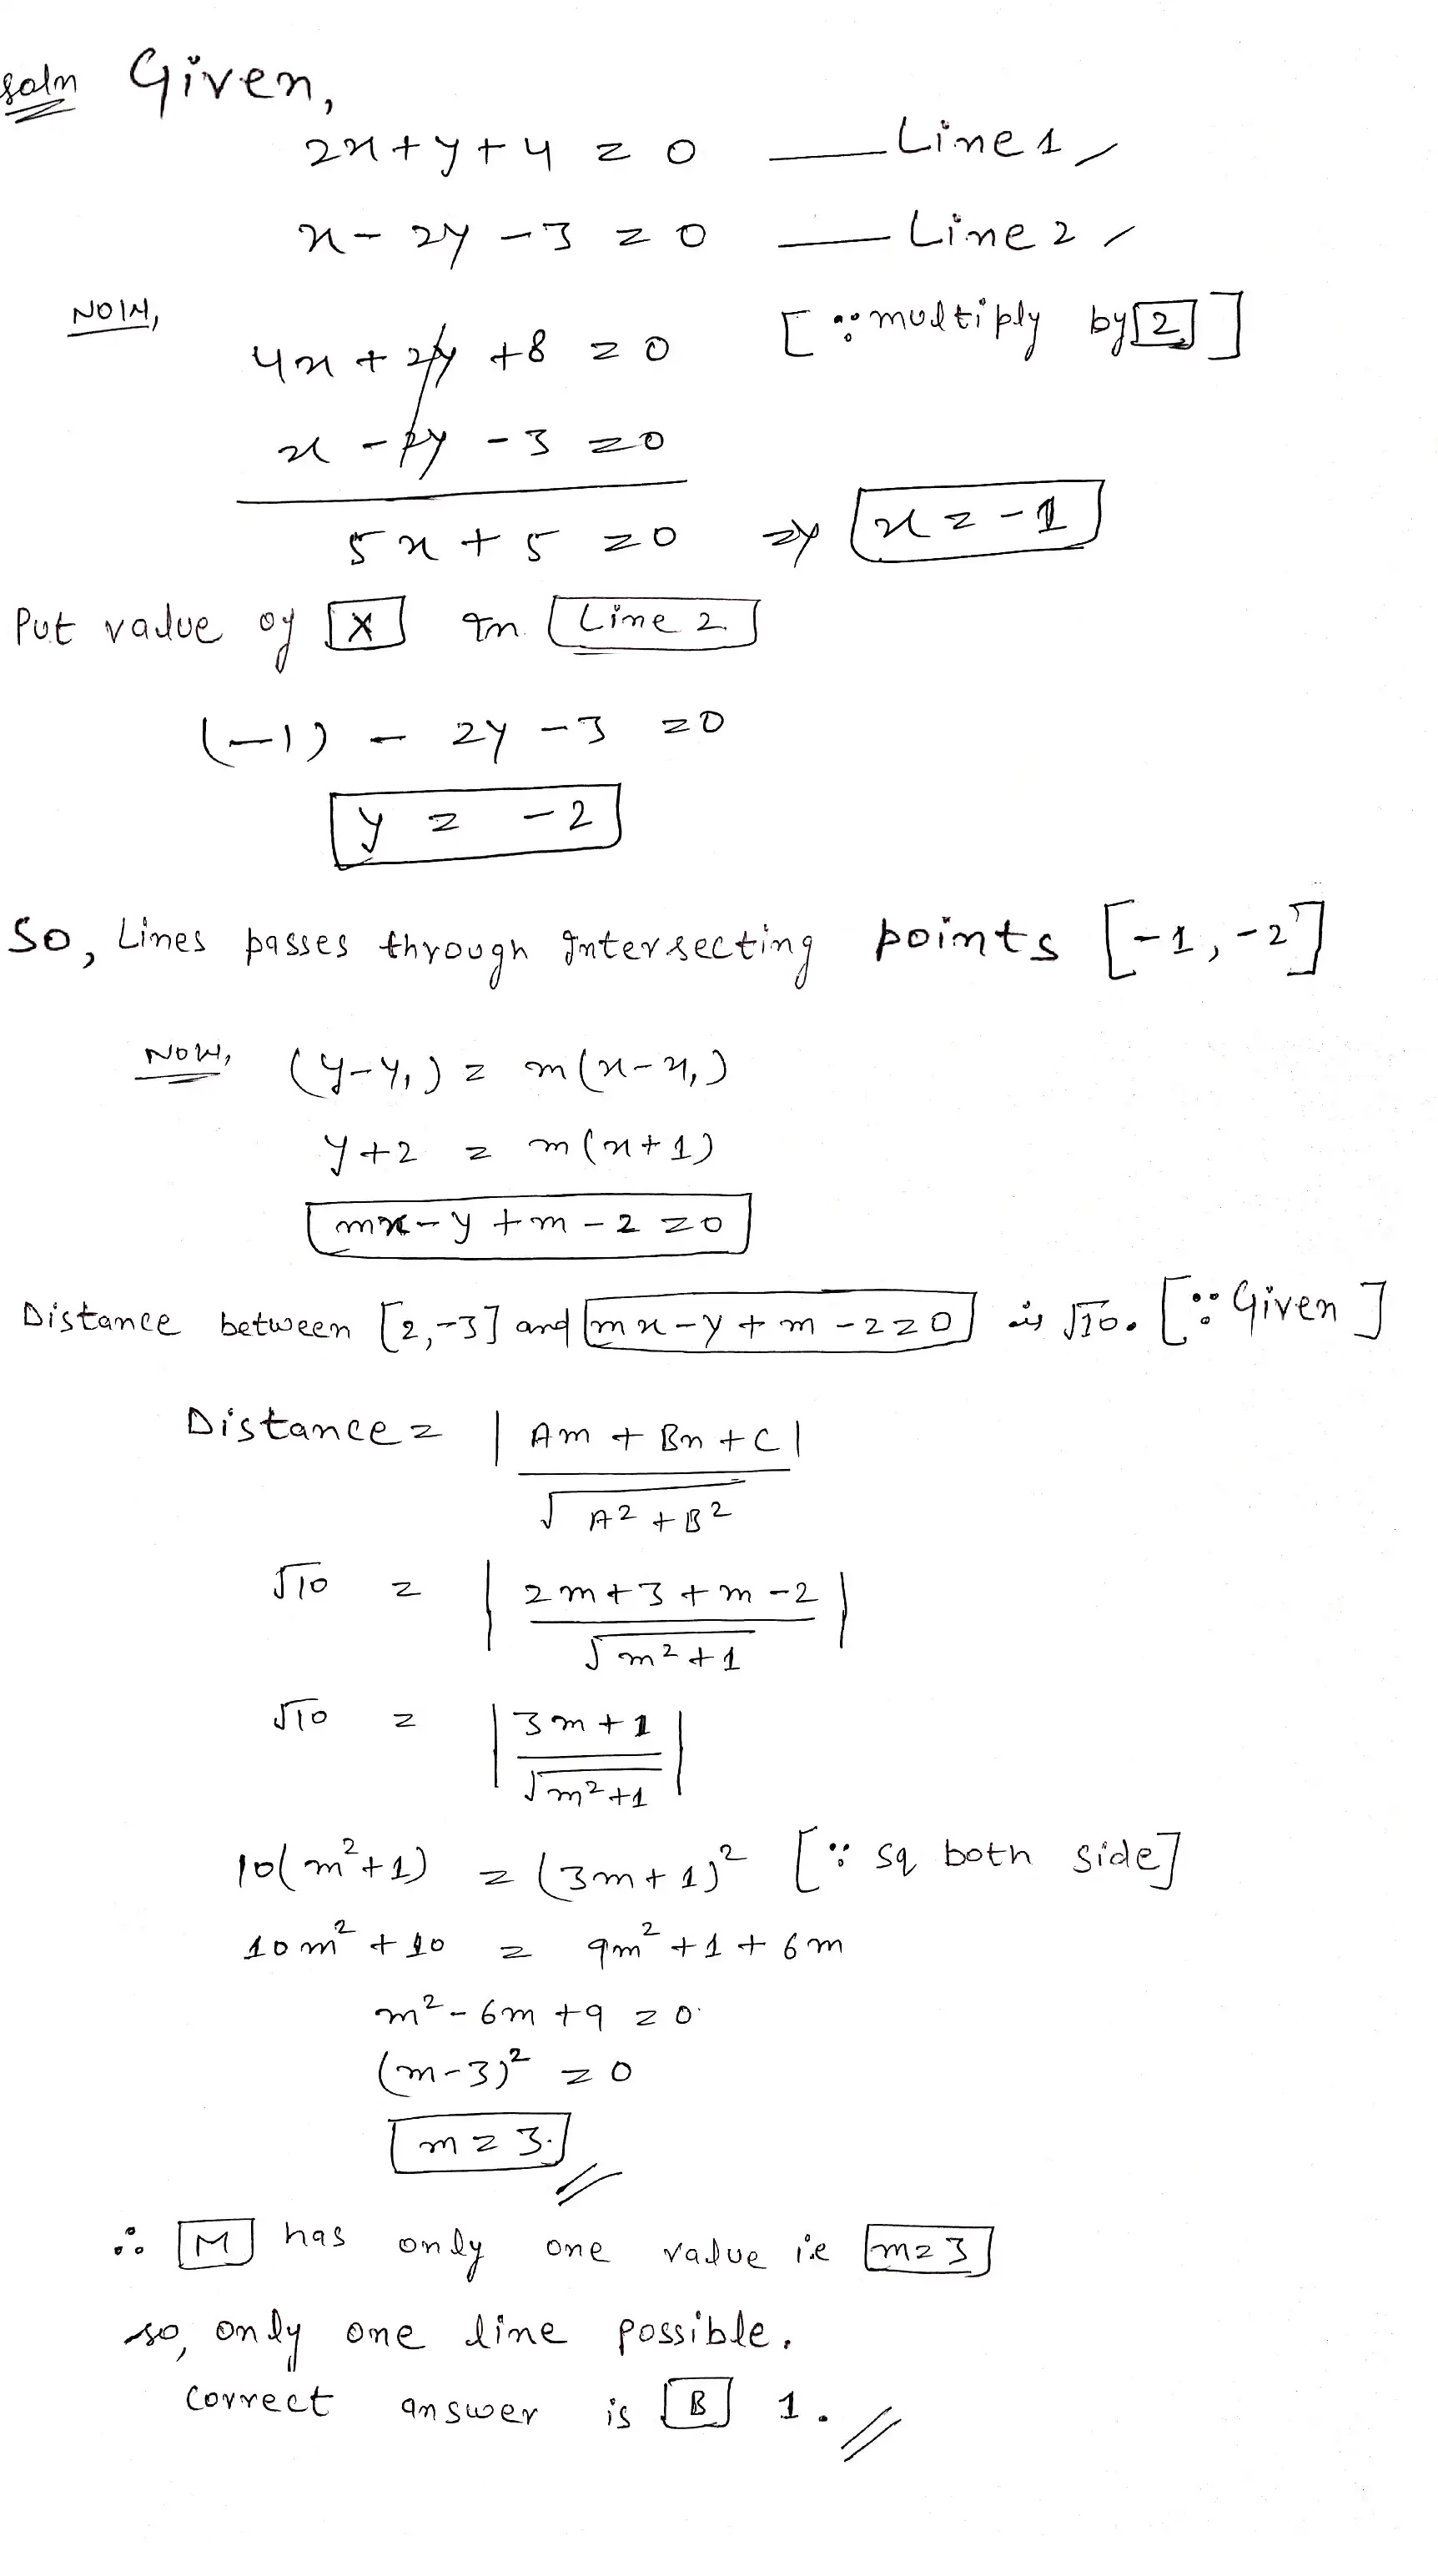 soln Given,
2x + y + 4 = 0 — Line 1
x - 2y - 3 = 0 — Line 2
NOW,
4x + 2y + 8 = 0 [∵ multiply by 2]
x - 2y - 3 = 0
5x + 5 = 0 ⇒ x = -1
Put value of X In Line 2
(-1) - 2y - 3 = 0
y = -2
So, Lines passes through Intersecting points [-1, -2]
NOW, (y - y₁) = m(x - x₁)
y + 2 = m(x + 1)
mx - y + m - 2 = 0
Distance between [2, -3] and mx - y + m - 2 = 0 is √10. [∵ Given]
Distance = |Am + Bn + C| / √A² + B²
√10 = |2m + 3 + m - 2 / √m² + 1|
√10 = |3m + 1 / √m² + 1|
10(m² + 1) = (3m + 1)² [∵ sq both side]
10m² + 10 = 9m² + 1 + 6m
m² - 6m + 9 = 0
(m - 3)² = 0
m = 3.
∴ M has only one value i.e m = 3
so, only one line possible.
correct answer is B 1.